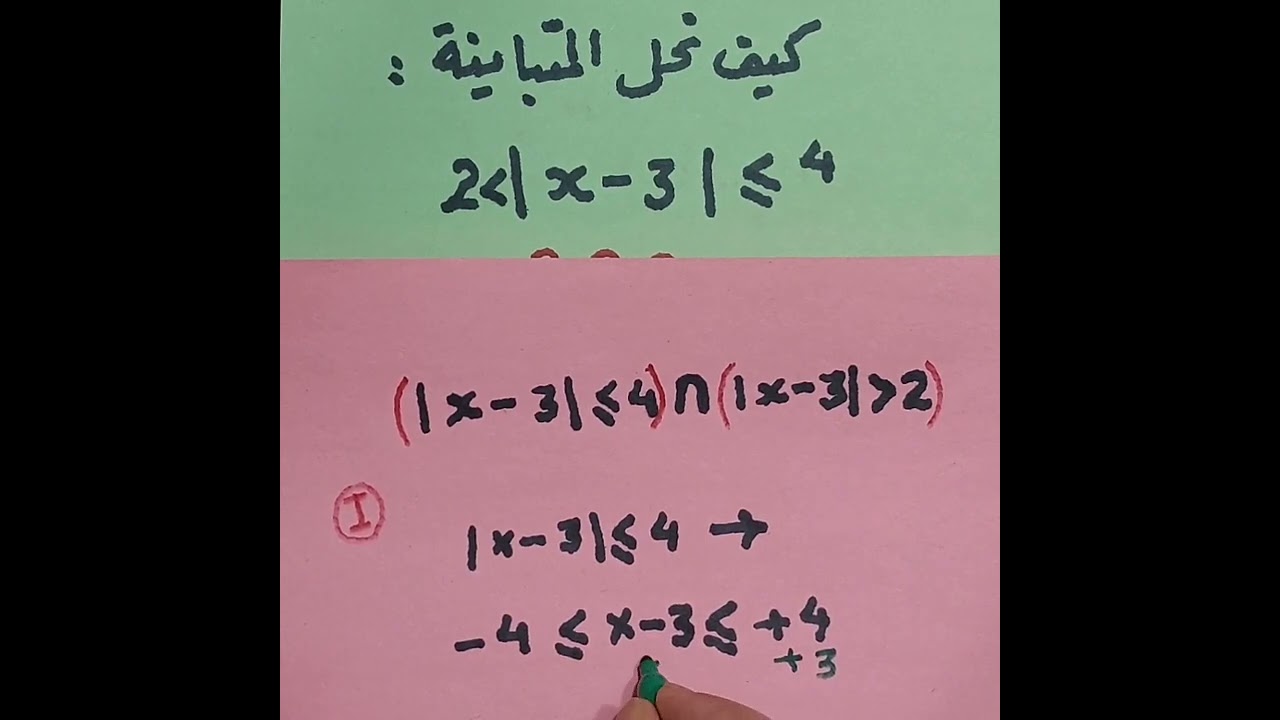 كيف نحل المتباينة :
2<|x-3|≤4
(|x-3|≤4)∩(|x-3|>2)
I
|x-3|≤4 →
-4≤x-3≤+4
+3